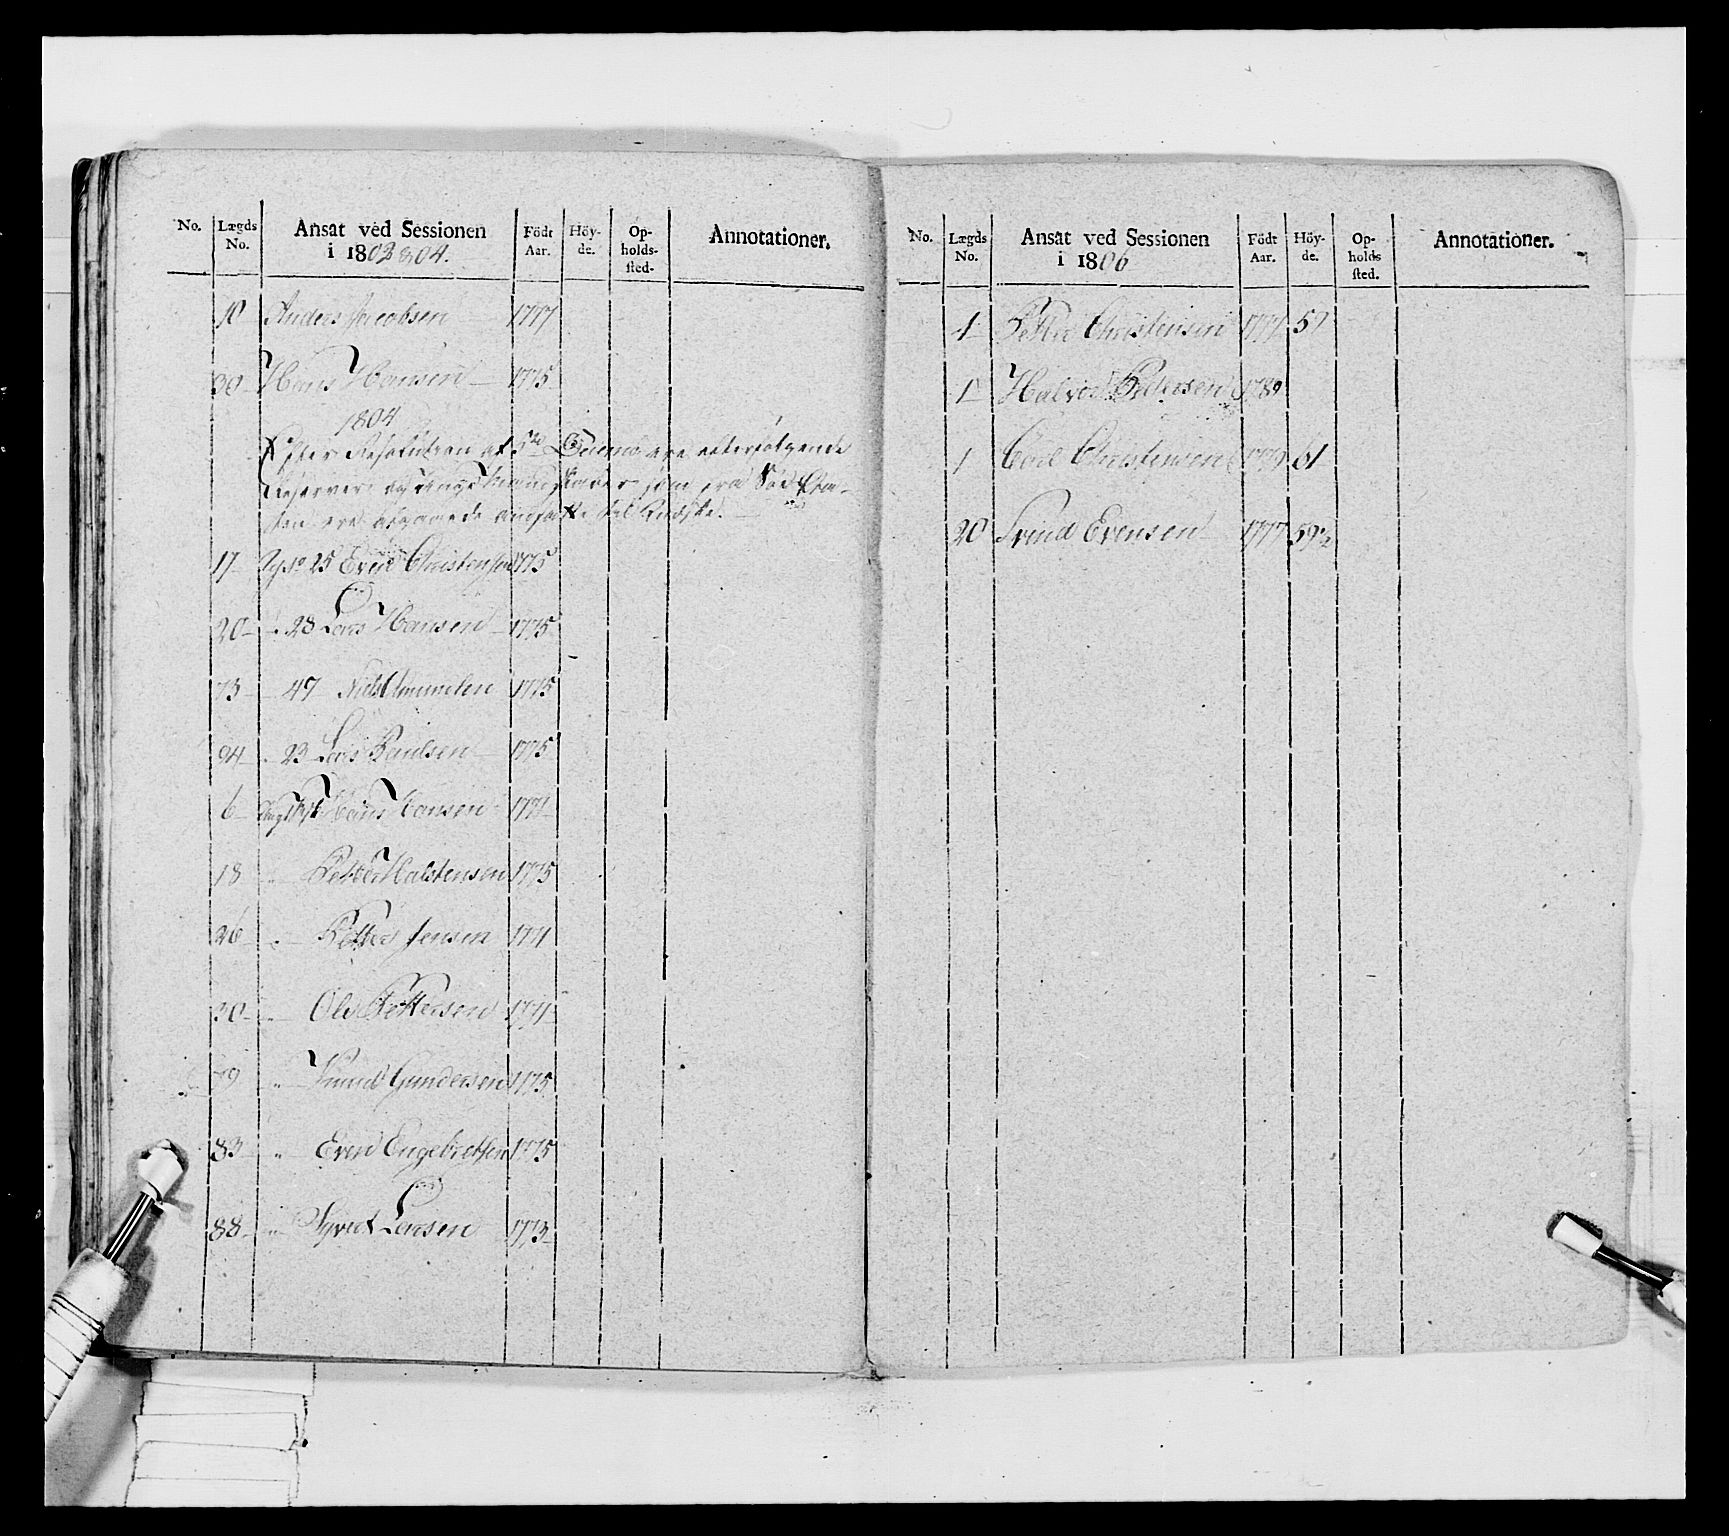 No. Lægds No. Ansat ved Sessionen i 1802 & 04. Födt Aar. Höy-de. Op-holds-sted- Annotationer.
10 Anders Jacobsen 1777
30 Hans Hansen 1775
1804
Efter Resolution af 5te ere efterfølgende
Reserver og som fra Sød Eta-
ten ere afgaaede ansatte til
17 No 25 Even Christensen 1775
20 " 28 Lars Hansen 1775
73 47 1775
94 " 23 Lars Paulsen 1775
6 Hans Hansen 1771
18 " Petter Halstensen 1775
26 " Petter Jensen 1771
30 " Ole Pettersen 1771
79 " Knud Gundersen 1775
83 " Even Engebretsen 1775
88 " Syvert Larsen 1773
No. Lægds No. Ansat ved Sessionen i 1806 Födt Aar. Höy-de. Op-holds sted. Annotationer.
1 Petter Christensen 1777 59
1 Halvor Pedersen 1789
1 Christensen 61
20 Svend Evensen 1777 59½